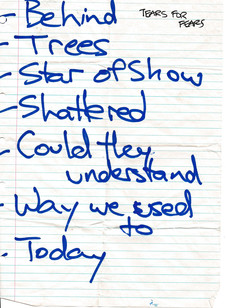 - Behind
TEARS FOR
FEARS
- Trees
- Star of Show
- Shattered
- Could they
understand
- Way we used
to
- Today